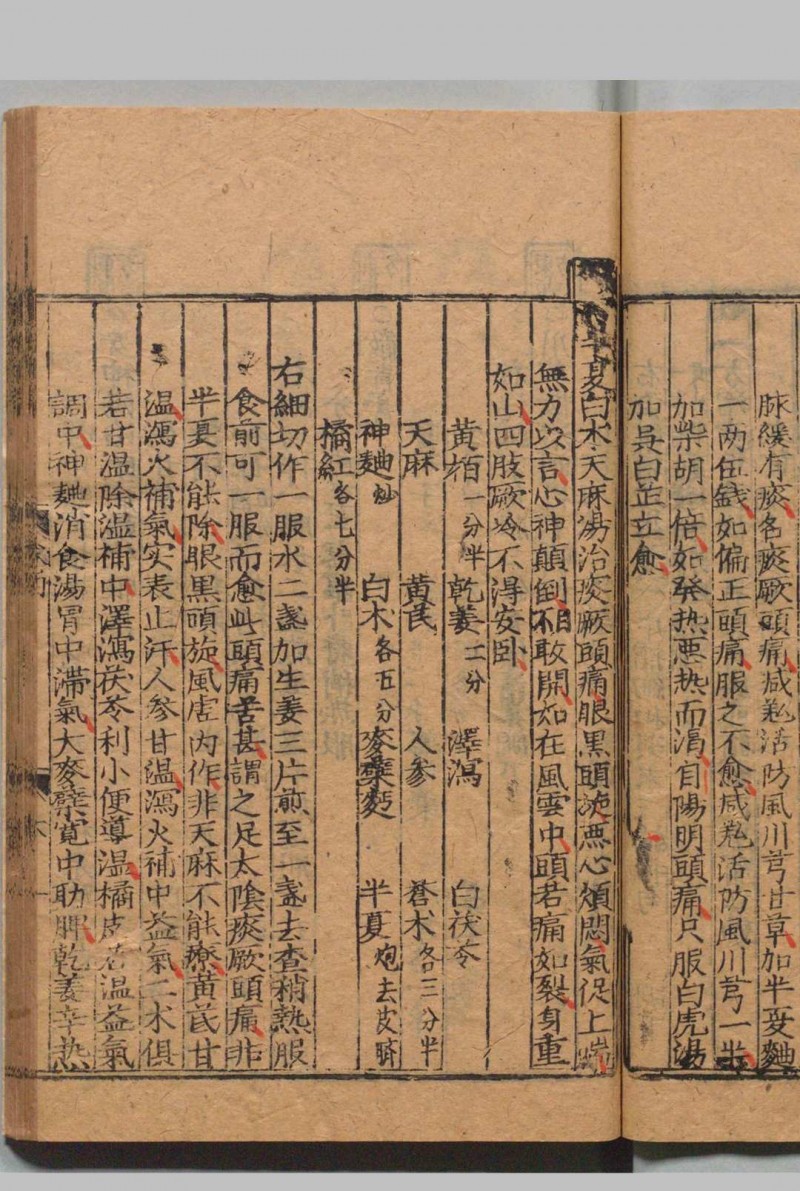 脉緩有痰名痰厥頭痛减羗活防風川芎甘草加半夏麯
一两伍錢如偏正頭痛服之不愈减羗活防風川芎一半
加柴胡一倍如發热惡热而渴自陽明頭痛只服白虎湯
加吳白芷立愈
半夏白朮天麻湯治痰厥頭痛眼黑頭旋悪心煩悶氣促上喘
無力以言心神顛倒不敢開如在風雲中頭若痛如裂身重
如山四肢厥冷不得安卧
黄栢一分半 乾姜二分 澤瀉 白茯苓
天麻 黄芪 人參 蒼术各三分半
神麯炒 白术各五分 麥蘗麪 半夏炮去皮臍
橘紅各七分半
右細切作一服水二盞加生姜三片煎至一盞去查稍熱服
食前可一服而愈此頭痛苦甚謂之足太陰痰厥頭痛非
半夏不能除眼黑頭旋風虗内作非天麻不能療黄芪甘
温瀉火補氣实表止汗人參甘温瀉火補中益氣二术俱
苦甘温除温補中澤瀉茯苓利小便導温橘皮苦温益氣
調中神麯消食湯胃中滯氣大麥蘗寛中助脾乾姜辛热